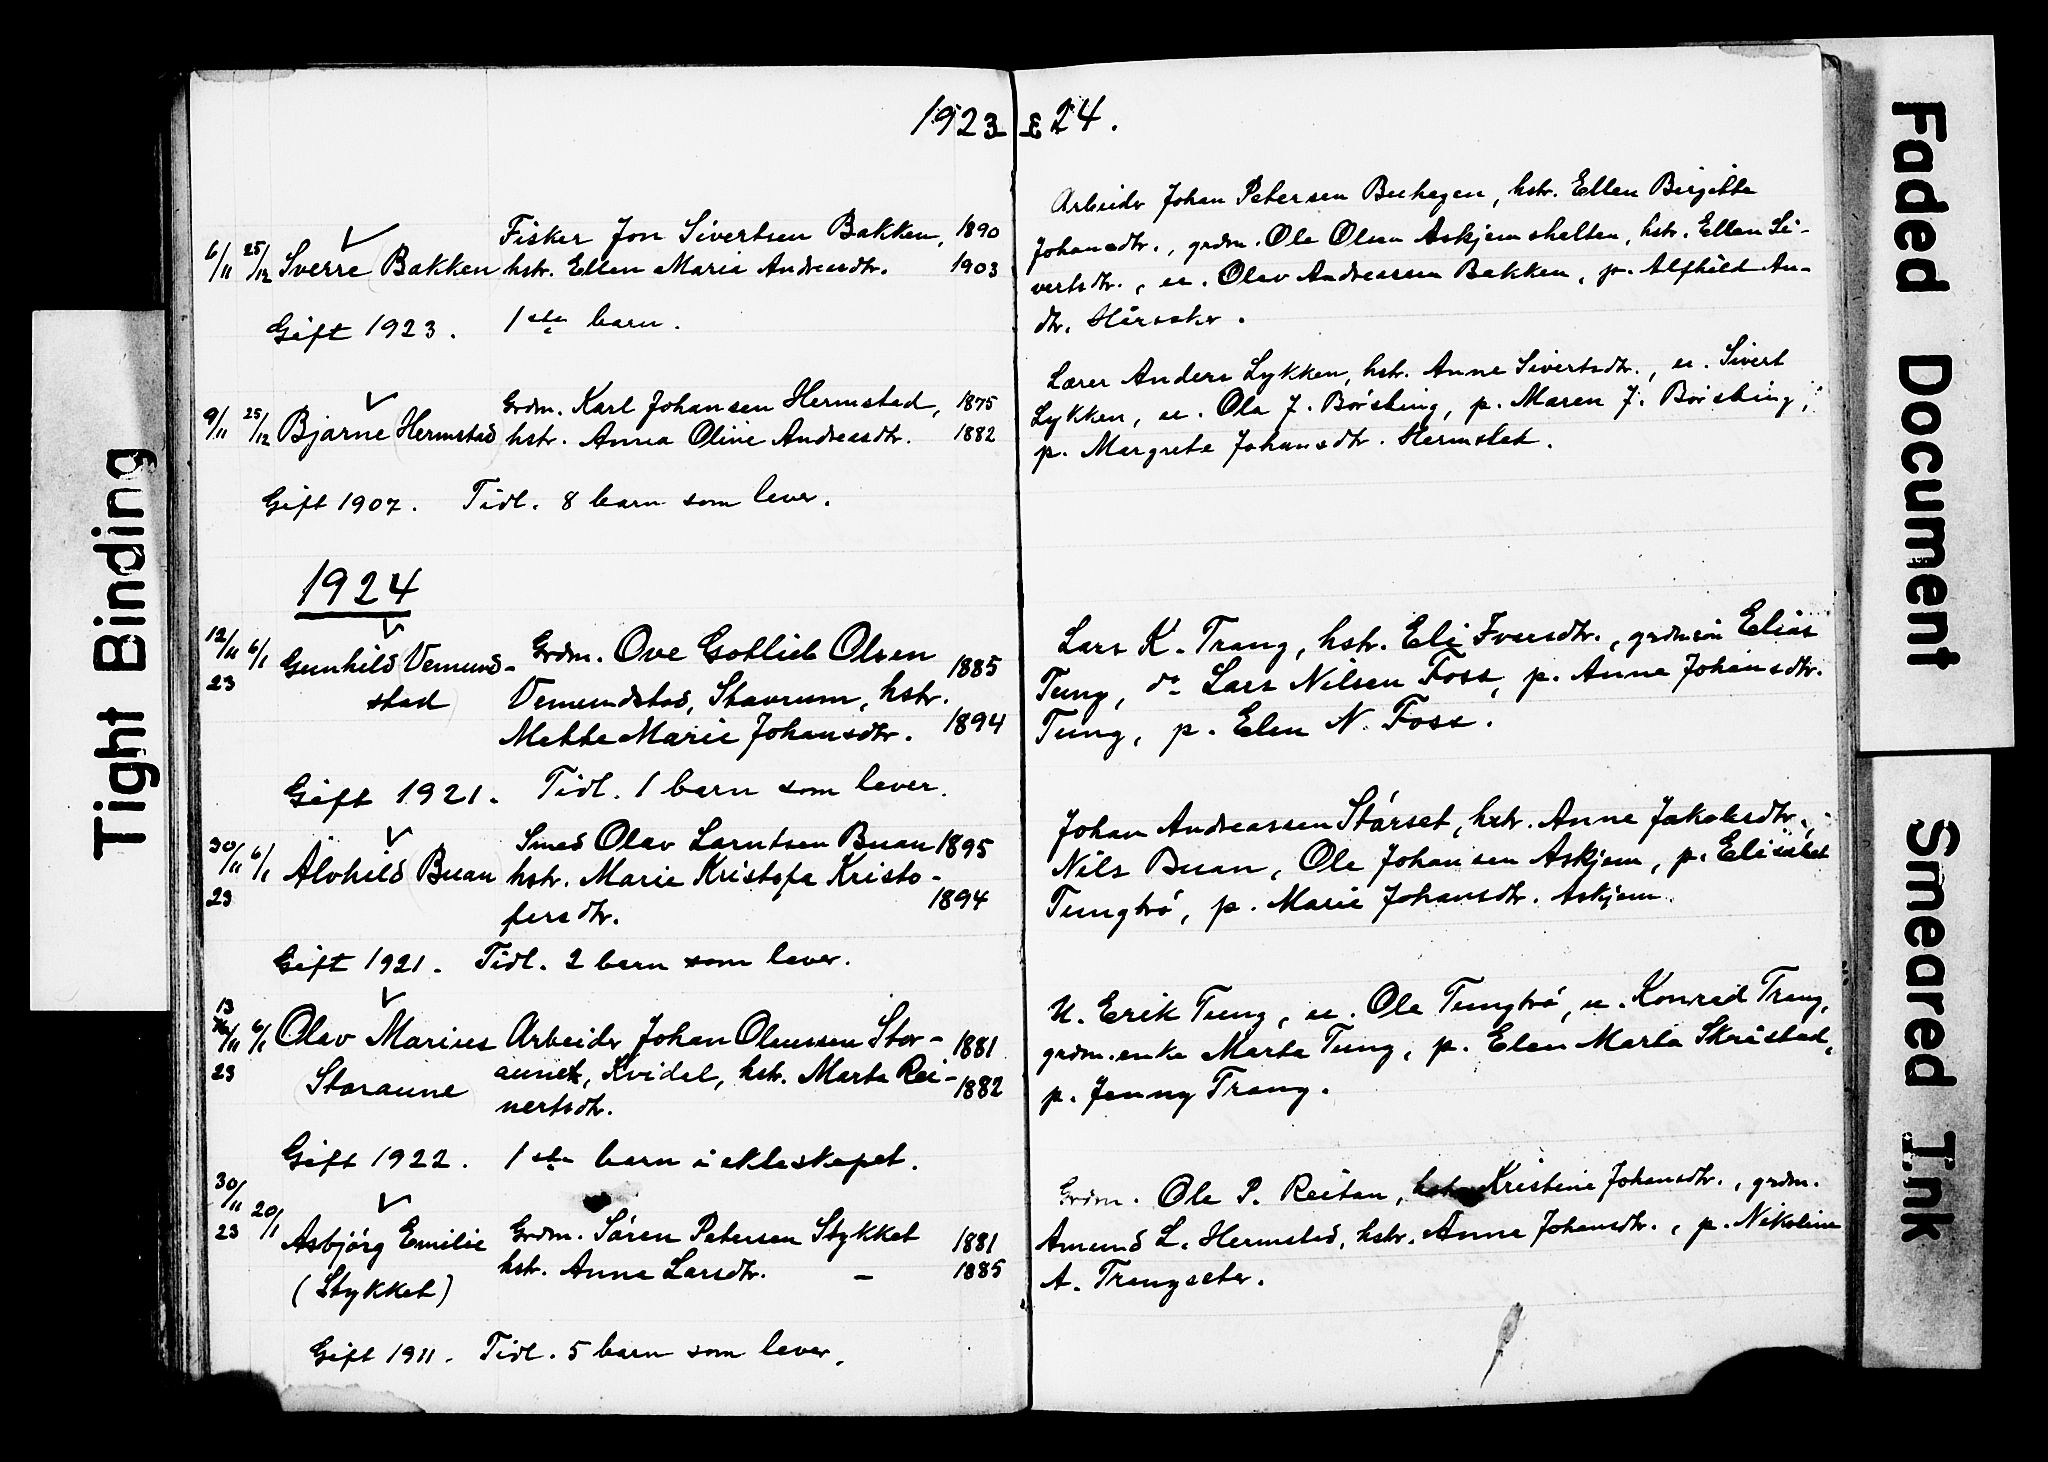 1923 & 24.
6/11 25/12 Sverre Bakken
Fisker Jon Sivertsen Bakken, 1890
hstr. Ellen Marie Andreasdtr. 1903
Gift 1923. 1ste barn.
Arbeider Johan Petersen Buhagen, hstr. Ellen Birgitte
Johansdtr., grdm. Ole Olsen Askjemshelten, hstr. Ellen Si-
vertsdtr., u. Olav Andreassen Bakken, p. Alfhild An-
dr.
9/11 25/12 Bjarne Hermstad
Grdm. Karl Johansen Hermstad, 1875
hstr. Anna Oline Andreasdtr. 1882
Gift 1907. Tidl. 8 barn som lever.
Lærer Anders Lykken, hstr. Anne Sivertsdtr., u. Sivert
Lykken, u. Ola J. Börsting, p. Maren J. Börsting,
p. Margrete Johansdtr. Hermstad.
1924
12/11 23 6/1 Gunhild Vemund-
stad
Grdm. Ove Gotlieb Olsen
Vemundstad, Stavrum, hstr. 1885
Mette Marie Johansdtr. 1894
Gift 1921. Tidl. 1 barn som lever.
Lars K. Trang, hstr. Eli Iversdtr., grdmsön Elias
Tung, do Lars Nilsen Foss, p. Anne Johansdtr.
Tung, p. Elen N. Foss.
30/11 23 6/1 Alvhild Buan
Smed Olav Larntsen Buan 1895
hstr. Marie Kristofa Kristo-
fersdtr. 1894
Gift 1921. Tidl. 2 barn som lever.
Johan Andreassen Störset, hstr. Anne Jakobsdtr.,
Nils Buan, Ole Johansen Askjem, p. Elisabet
Tungtrö, p. Marie Johansdtr. Askjem.
13/11 23 6/1 Olav Marius
Storaune
Arbeider Johan Olaussen Stor- 1881
aunet, Kvidal, hstr. Marta Rei- 1882
nertsdtr.
Gift 1922. 1ste barn i ekteskapet.
U. Erik Tung, u. Ole Tungtrö, u. Konrad Trang,
grdm.enke Marta Tung, p. Elen Marta Skrøstad,
p. Jenny Trang.
30/11 23 20/1 Asbjörg Emilie
(Stykket)
Grdm. Sören Petersen Stykket 1881
hstr. Anne Larsdtr. - 1885
Gift 1911. Tidl. 5 barn som lever.
Grdm. Ole P. Reitan, hstr. Kristine Johansdtr., grdm.
Amund L. Hermstad, hstr. Anne Johansdtr., p. Nikoline
A. Trangseter.
Tight Binding
Faded Document
Smeared Ink